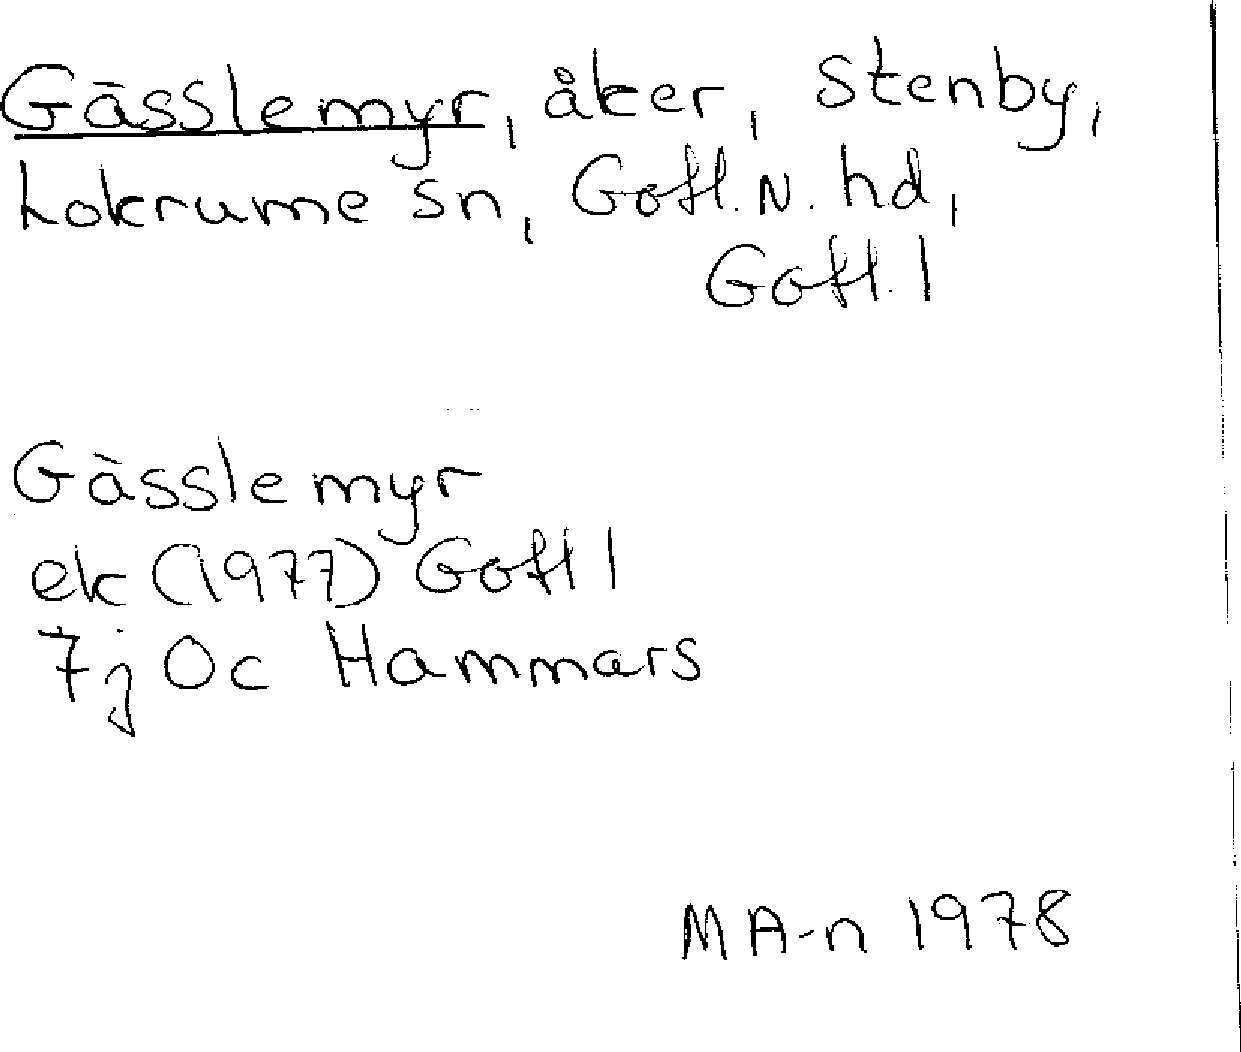 Gässlemyr, åker, Stenby,
Lokrume sn, Gotl. N. hd,
Gotl. l
Gässlemyr
ek (1977) Gotl l
7j 0c Hammars
MA-n 1978